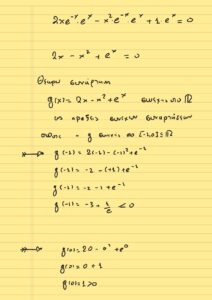 2xe^{-x}e^x - x^2e^{-x}e^x + 1e^x = 0
2x - x^2 + e^x = 0
Θεωρώ συνάρτηση
g(x) = 2x - x^2 + e^x συνεχ-ς στο ℝ
ως πράξεις συνεχών συναρτήσεων
g συνεχ-ς στο [-1,0] ⊆ ℝ
g(-1) = 2(-1) - (-1)^2 + e^{-1}
g(-1) = -2 - (+1) + e^{-1}
g(-1) = -2 - 1 + e^{-1}
g(-1) = -3 + 1/e < 0
g(0) = 2·0 - 0^2 + e^0
g(0) = 0 + 1
g(0) = 1 > 0